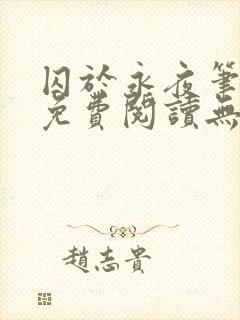 囚於永夜筆
免費閱讀無
趙志貴